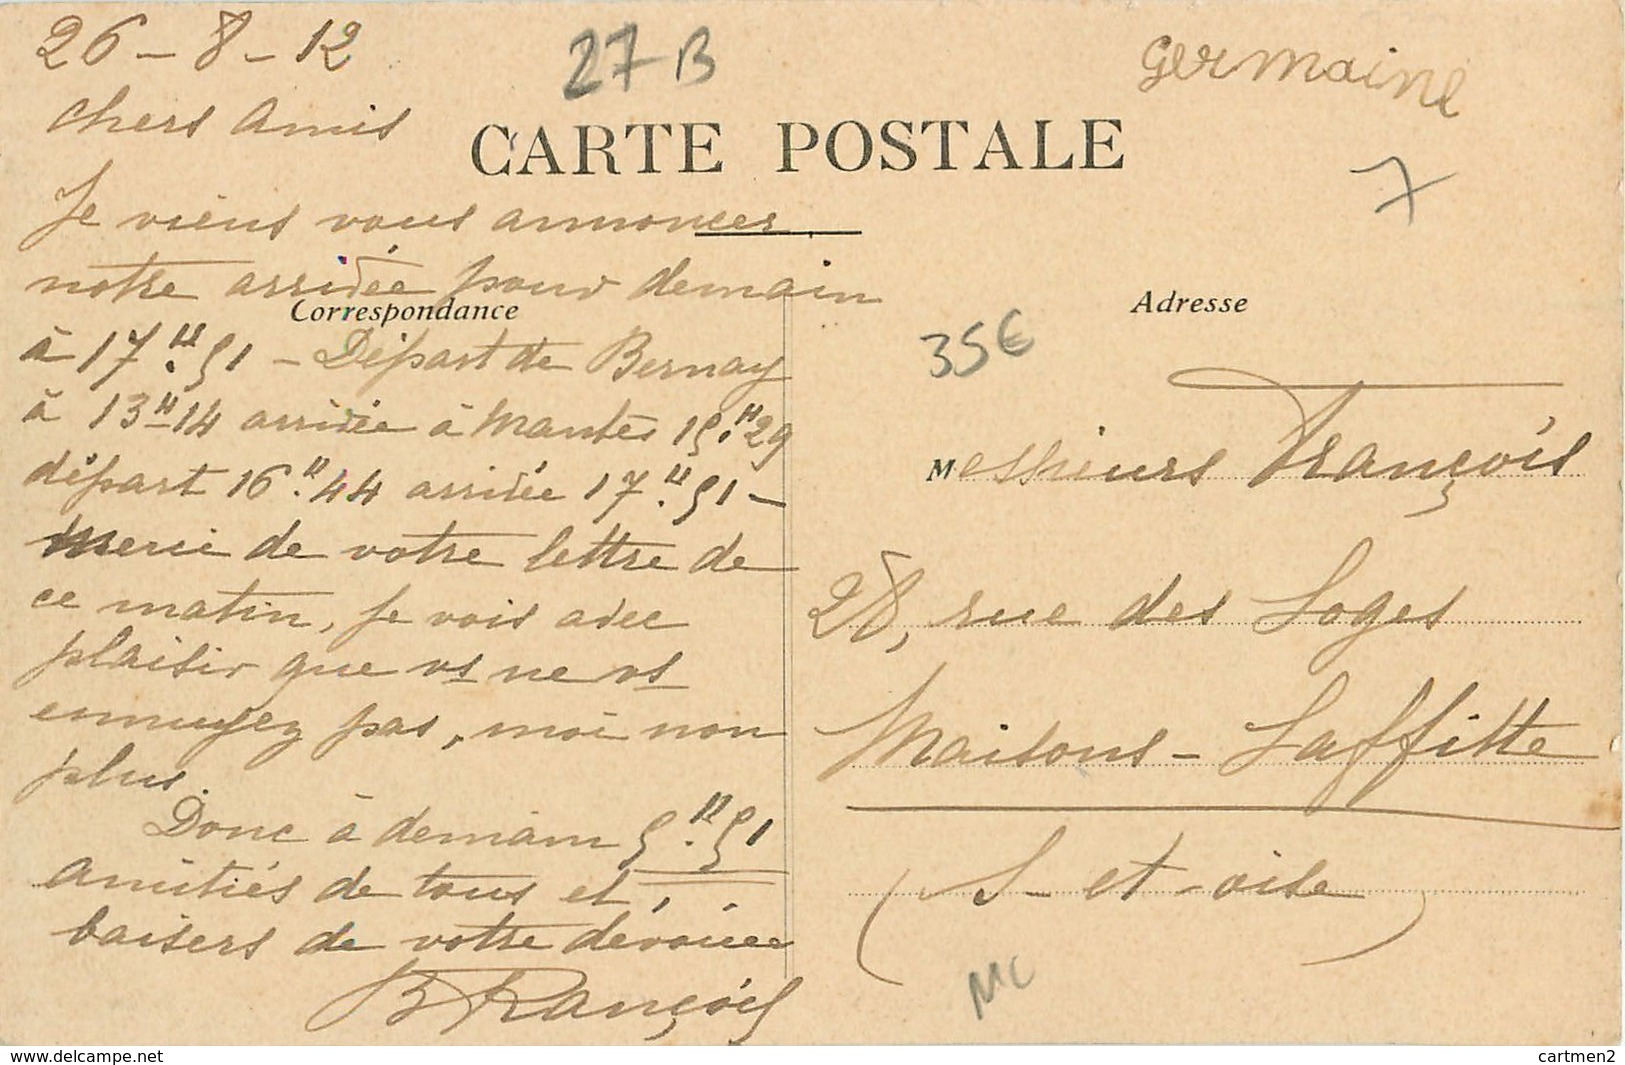 26 - 8 - 12
27 B
Germaine
chers amis
CARTE POSTALE
7
Je viens vous annoncer
notre arrivée pour demain
Correspondance
Adresse
à 17.H 51 - Départ de Bernay
35€
à 13H14 arrivée à Mantes 15.H29
départ 16.H 44 arrivée 17.H 51 -
Messieurs François
merci de votre lettre de
ce matin, je vois avec
28, rue des Loges
plaisir que vs ne vs
ennuyez pas, moi non
Maisons - Laffitte
plus.
Donc à demain 5.H 51
amitiés de tous et
(S - et - oise)
baisers de votre dévouée
B François
MC
www.delcampe.net
cartmen2